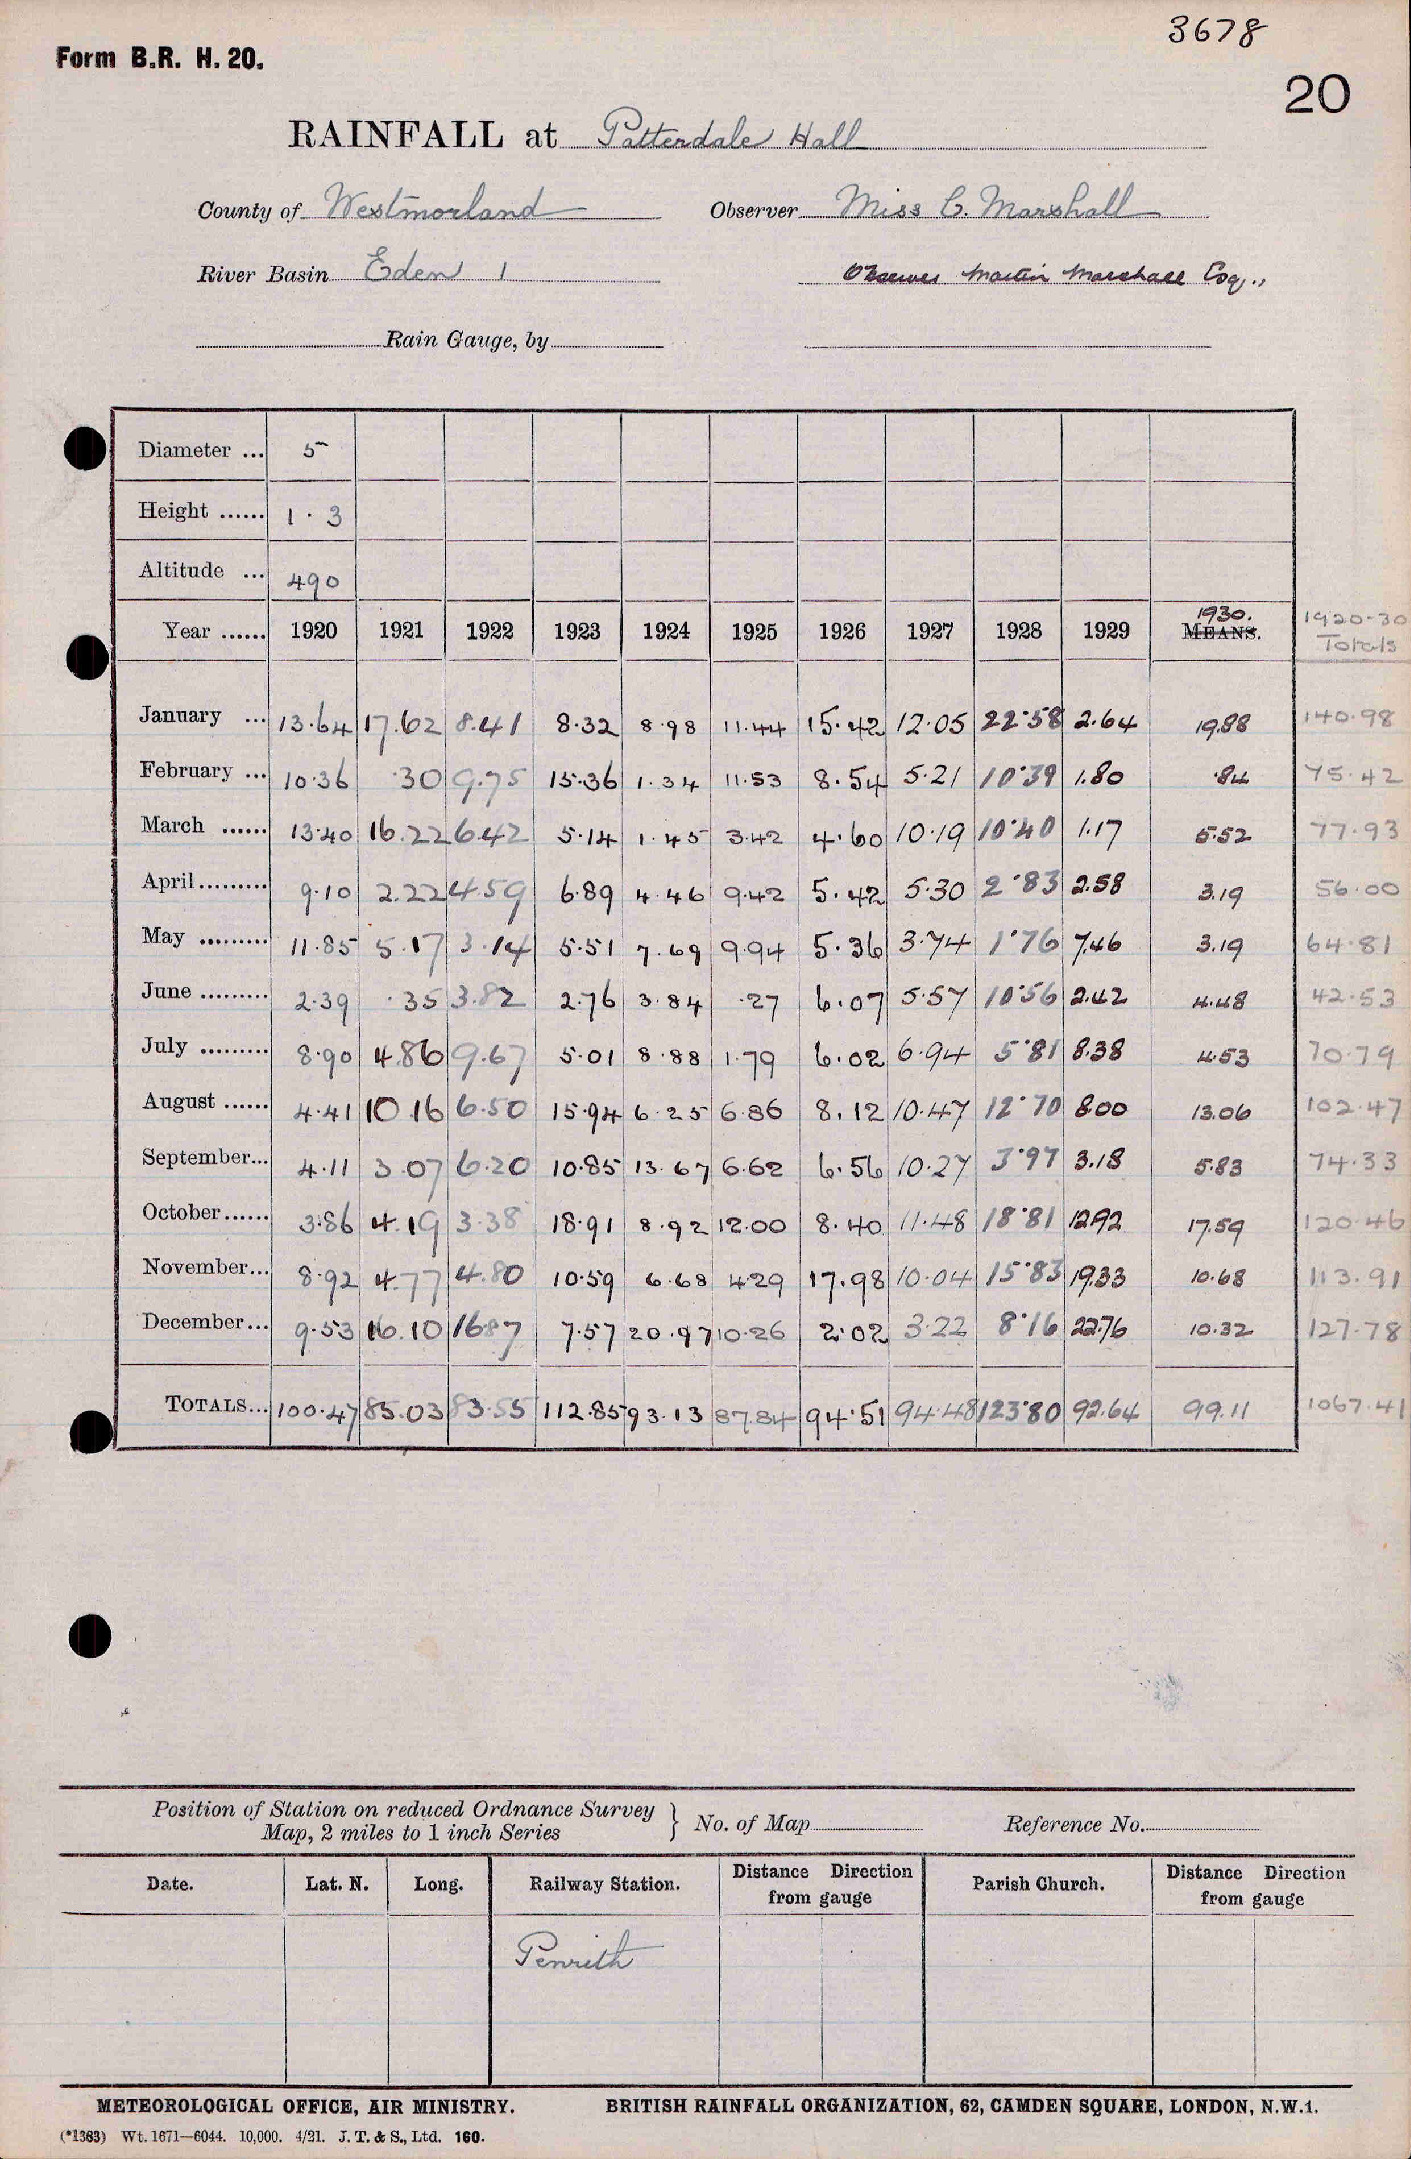 3678
Form B.R. H. 20.
20
RAINFALL at Patterdale Hall
County of Westmorland Observer Miss C. Marshall
River Basin Eden 1 Observer Martin Marshall Esq.,
Rain Gauge, by
Diameter ... 5
Height ...... 1 · 3
Altitude ... 490
Year ...... 1920 1921 1922 1923 1924 1925 1926 1927 1928 1929 1930. MEANS. 1920-30 Totals
January ... 13·64 17.62 8.41 8·32 8·98 11·44 15·42 12·05 22·58 2.64 19.88 140·98
February ... 10·36 ·30 9.75 15·36 1·34 11·53 8·54 5·21 10·39 1.80 ·84 75·42
March ...... 13·40 16.22 6.42 5·14 1·45 3·42 4·60 10·19 10·40 1·17 5·52 77·93
April ......... 9·10 2.22 4.59 6·89 4·46 9·42 5·42 5·30 2·83 2.58 3.19 56·00
May ......... 11·85 5.17 3.14 5·51 7·69 9·94 5·36 3·74 1·76 7.46 3.19 64·81
June ......... 2·39 ·35 3.82 2·76 3·84 ·27 6·07 5·57 10·56 2.42 4.48 42·53
July ......... 8·90 4.86 9.67 5·01 8·88 1·79 6·02 6·94 5·81 8.38 4.53 70·79
August ...... 4·41 10.16 6.50 15·94 6·25 6·86 8.12 10·47 12·70 8.00 13.06 102·47
September... 4·11 3.07 6.20 10·85 13·67 6·62 6·56 10·27 3·97 3.18 5.83 74·33
October ...... 3·86 4.19 3.38 18·91 8·92 12·00 8·40 11·48 18·81 12.92 17.59 120·46
November... 8·92 4.77 4.80 10·59 6·68 4·29 17·98 10·04 15·83 19.33 10·68 113·91
December... 9·53 16.10 16.87 7·57 20·97 10·26 2·02 3·22 8·16 22.76 10·32 127·78
TOTALS... 100·47 85.03 83.55 112·85 93·13 87.84 94·51 94·48 123·80 92.64 99.11 1067·41
Position of Station on reduced Ordnance Survey Map, 2 miles to 1 inch Series } No. of Map Reference No.
Date. Lat. N. Long. Railway Station. Distance Direction from gauge Parish Church. Distance Direction from gauge
Penrith
METEOROLOGICAL OFFICE, AIR MINISTRY. BRITISH RAINFALL ORGANIZATION, 62, CAMDEN SQUARE, LONDON, N.W.1.
(*1363) Wt. 1671—6044. 10,000. 4/21. J. T. & S., Ltd. 160.